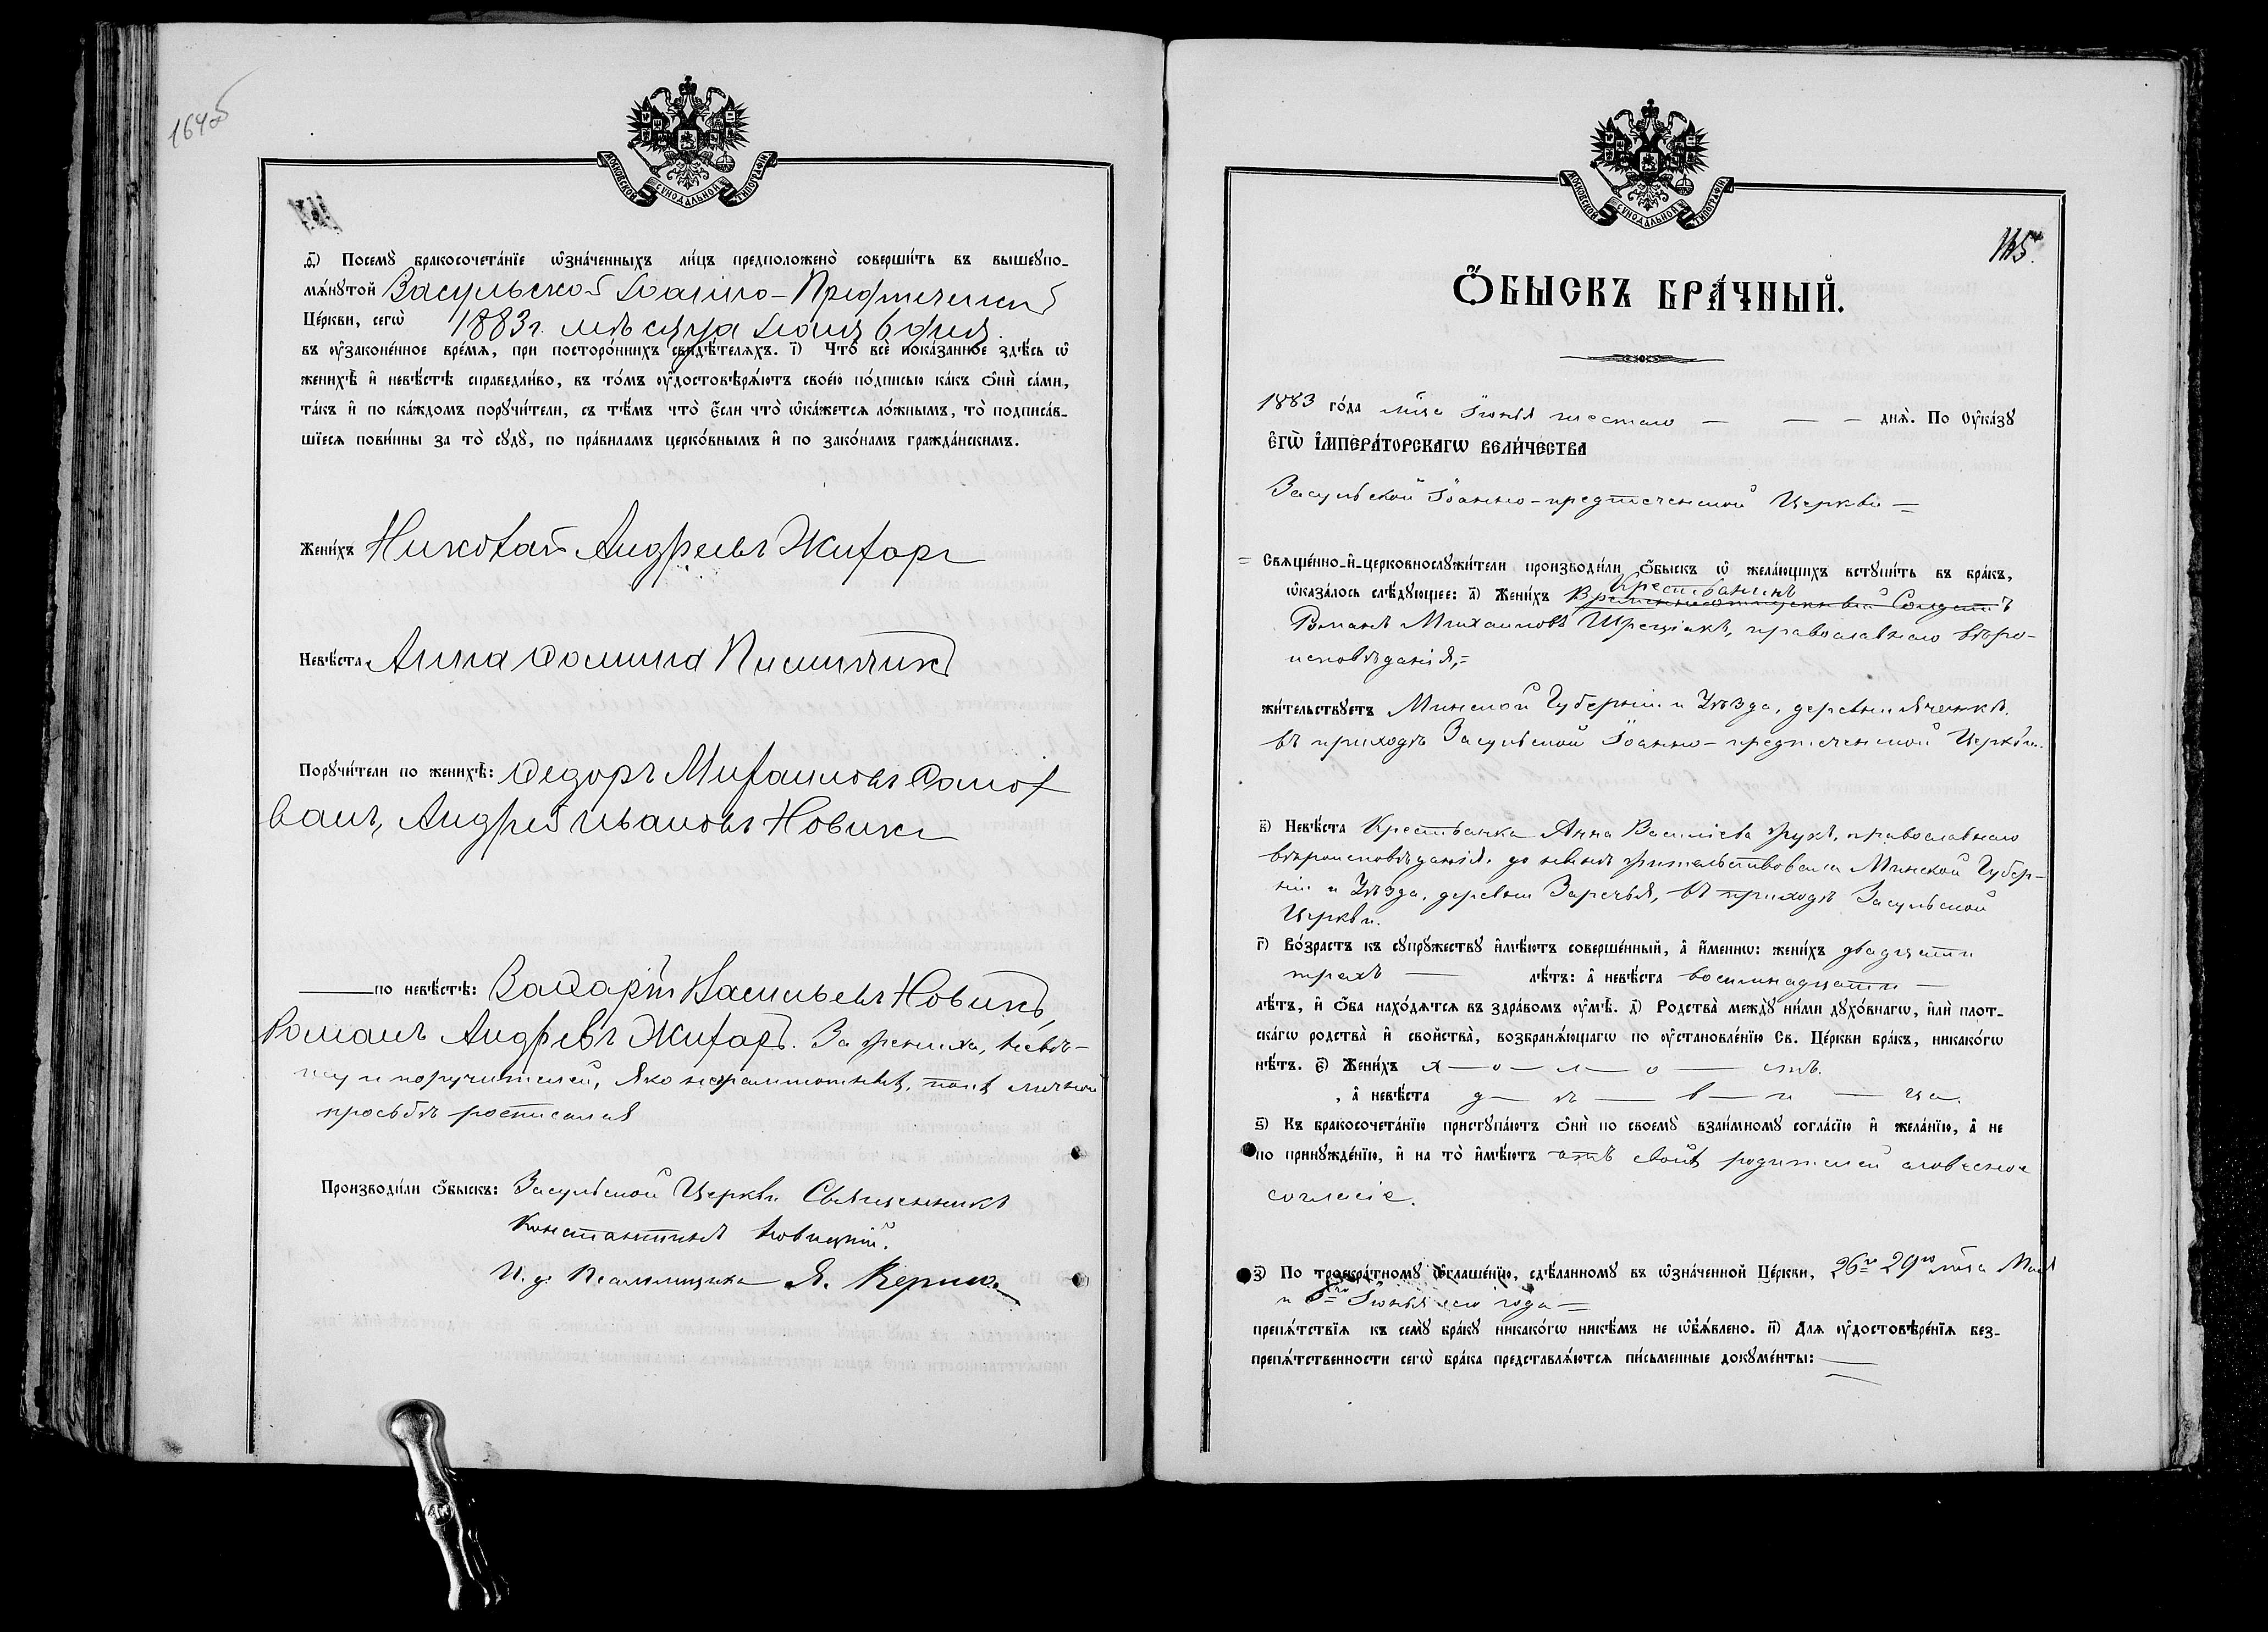 164об
МОСКОВСКОЙ СѴНОДАЛЬНОЙ ТИПОГРАФІИ
д҃і) Посемꙋ̀ бракосочета́нїе ѡ҆зна́ченныхъ ли́цъ предположено̀ соверши́ть въ вышеꙋпо-
мѧ́нутой Засульской Іоанно-Предтеченской
Це́ркви, сегѡ̀ 1883 г. мѣсяца Іюня 6 дня.
въ ᲂу҆законе́нное вре́мѧ, при посторо́ннихъ свидѣ́телѧхъ. і҃) Что̀ всѐ пока́занное здѣ́сь ѡ҆
женихѣ̀ и҆ невѣ́стѣ справедли́во, въ то́мъ ᲂу҆достовѣрѧ́ютъ свое́ю по́дписью ка́къ ѻ҆нѝ са́ми,
та́къ и҆ по ка́ждомъ порꙋчи́тели, съ тѣ́мъ что̀ є҆́сли что̀ ѡ҆ка́жетсѧ ло́жнымъ, то̀ подписа́в-
шїесѧ пови́нны за то̀ сꙋдꙋ̀, по пра́виламъ церко́внымъ и҆ по зако́намъ гражда́нскимъ.
Жени́хъ Николай Андреевъ Жихарь
Невѣ́ста Анна Фомина
Порꙋчи́тели по женихѣ̀: Федоръ Михаиловъ
Андрей Ивановъ Новикъ
по невѣ́стѣ: Захарій Васильевъ Новикъ,
Романъ Андреевъ Жихарь. За жениха, невѣ-
сту и поручителей, яко неграмотныхъ, по ихъ личной
просьбѣ росписался
Производи́ли ѻ҆́быскъ: Засульской Церкви Священникъ
Константинъ Новицкій.
И. д. Псаломщика Я.
МОСКОВСКОЙ СѴНОДАЛЬНОЙ ТИПОГРАФІИ
115.
Ѻ҆́БЫСКЪ БРА́ЧНЫЙ.
1883 го́да мѣсяца Іюня шестаго — — — днѧ̀. По Оу҆ка́зꙋ
Є҆ГѠ̀ И҆МПЕРА́ТОРСКАГѠ ВЕЛИ́ЧЕСТВА
Засульской Іоанно-предтеченской Церкви =
= Свѧще́нно-и҆-церковнослꙋжи́тели производи́ли ѻ҆́быскъ ѡ҆ жела́ющихъ встꙋпи́ть въ бра́къ,
ѡ҆каза́лось слѣ́дꙋющее: а҃) Жени́хъ Временноотпускный Солдатъ
Крестьянинъ
Романъ Михаиловъ православнаго вѣро-
исповѣданія, =
жи́тельствꙋетъ Минской Губерніи и Уѣзда, деревни Яченкѣ,
въ приходѣ Засульской Іоанно-предтеченской Церкви.
в҃) Невѣ́ста Крестьянка Анна Василіева православнаго
вѣроисповѣданія, до нынѣ жительствовала Минской Губер-
ніи и Уѣзда, деревни Заречья, въ приходѣ Засульской
Церкви.
г҃) Во́зрастъ къ сꙋпрꙋ́жествꙋ и҆мѣ́ютъ соверше́нный, а҆ и҆́меннѡ: жени́хъ двадцати
трехъ — лѣ́тъ: а҆ невѣ́ста восемнадцати —
лѣ́тъ, и҆ ѻ҆́ба нахо́дѧтсѧ въ здра́вомъ ᲂу҆мѣ̀. д҃) Родства̀ междꙋ̀ ни́ми дꙋхо́внагѡ, и҆лѝ плот-
ска́гѡ родства̀ и҆ сво́йства̀, возбранѧ́ющагѡ по ᲂу҆становле́нїю Св. Це́ркви бра́къ, никако́гѡ
нѣ́тъ. є҃) Жени́хъ х — о — л — о — стъ.
, а҆ невѣ́ста д — ѣ — в — и — ца.
ѕ҃) Къ бракосочета́нїю пристꙋпа́ютъ ѻ҆нѝ по своемꙋ̀ взаи́мномꙋ согла́сїю и҆ жела́нїю, а҆ не
по принꙋжде́нїю, и҆ на то̀ и҆мѣ́ютъ отъ своихъ родителей словесное
согласіе.
з҃) По троекра́тномꙋ ѡ҆глаше́нїю, сдѣ́ланномꙋ въ ѡ҆зна́ченной Це́ркви, 26го 29го мѣсяца Мая
и 5го Іюня сего года =
препѧ́тствїѧ къ семꙋ̀ бра́кꙋ никако́гѡ никѣ́мъ не ѡ҆бъѧ́влено. и҃) Длѧ ᲂу҆достовѣре́нїѧ без-
препѧ́тственности сегѡ̀ бра́ка представлѧ́ютсѧ пи́сьменные докꙋме́нты: —